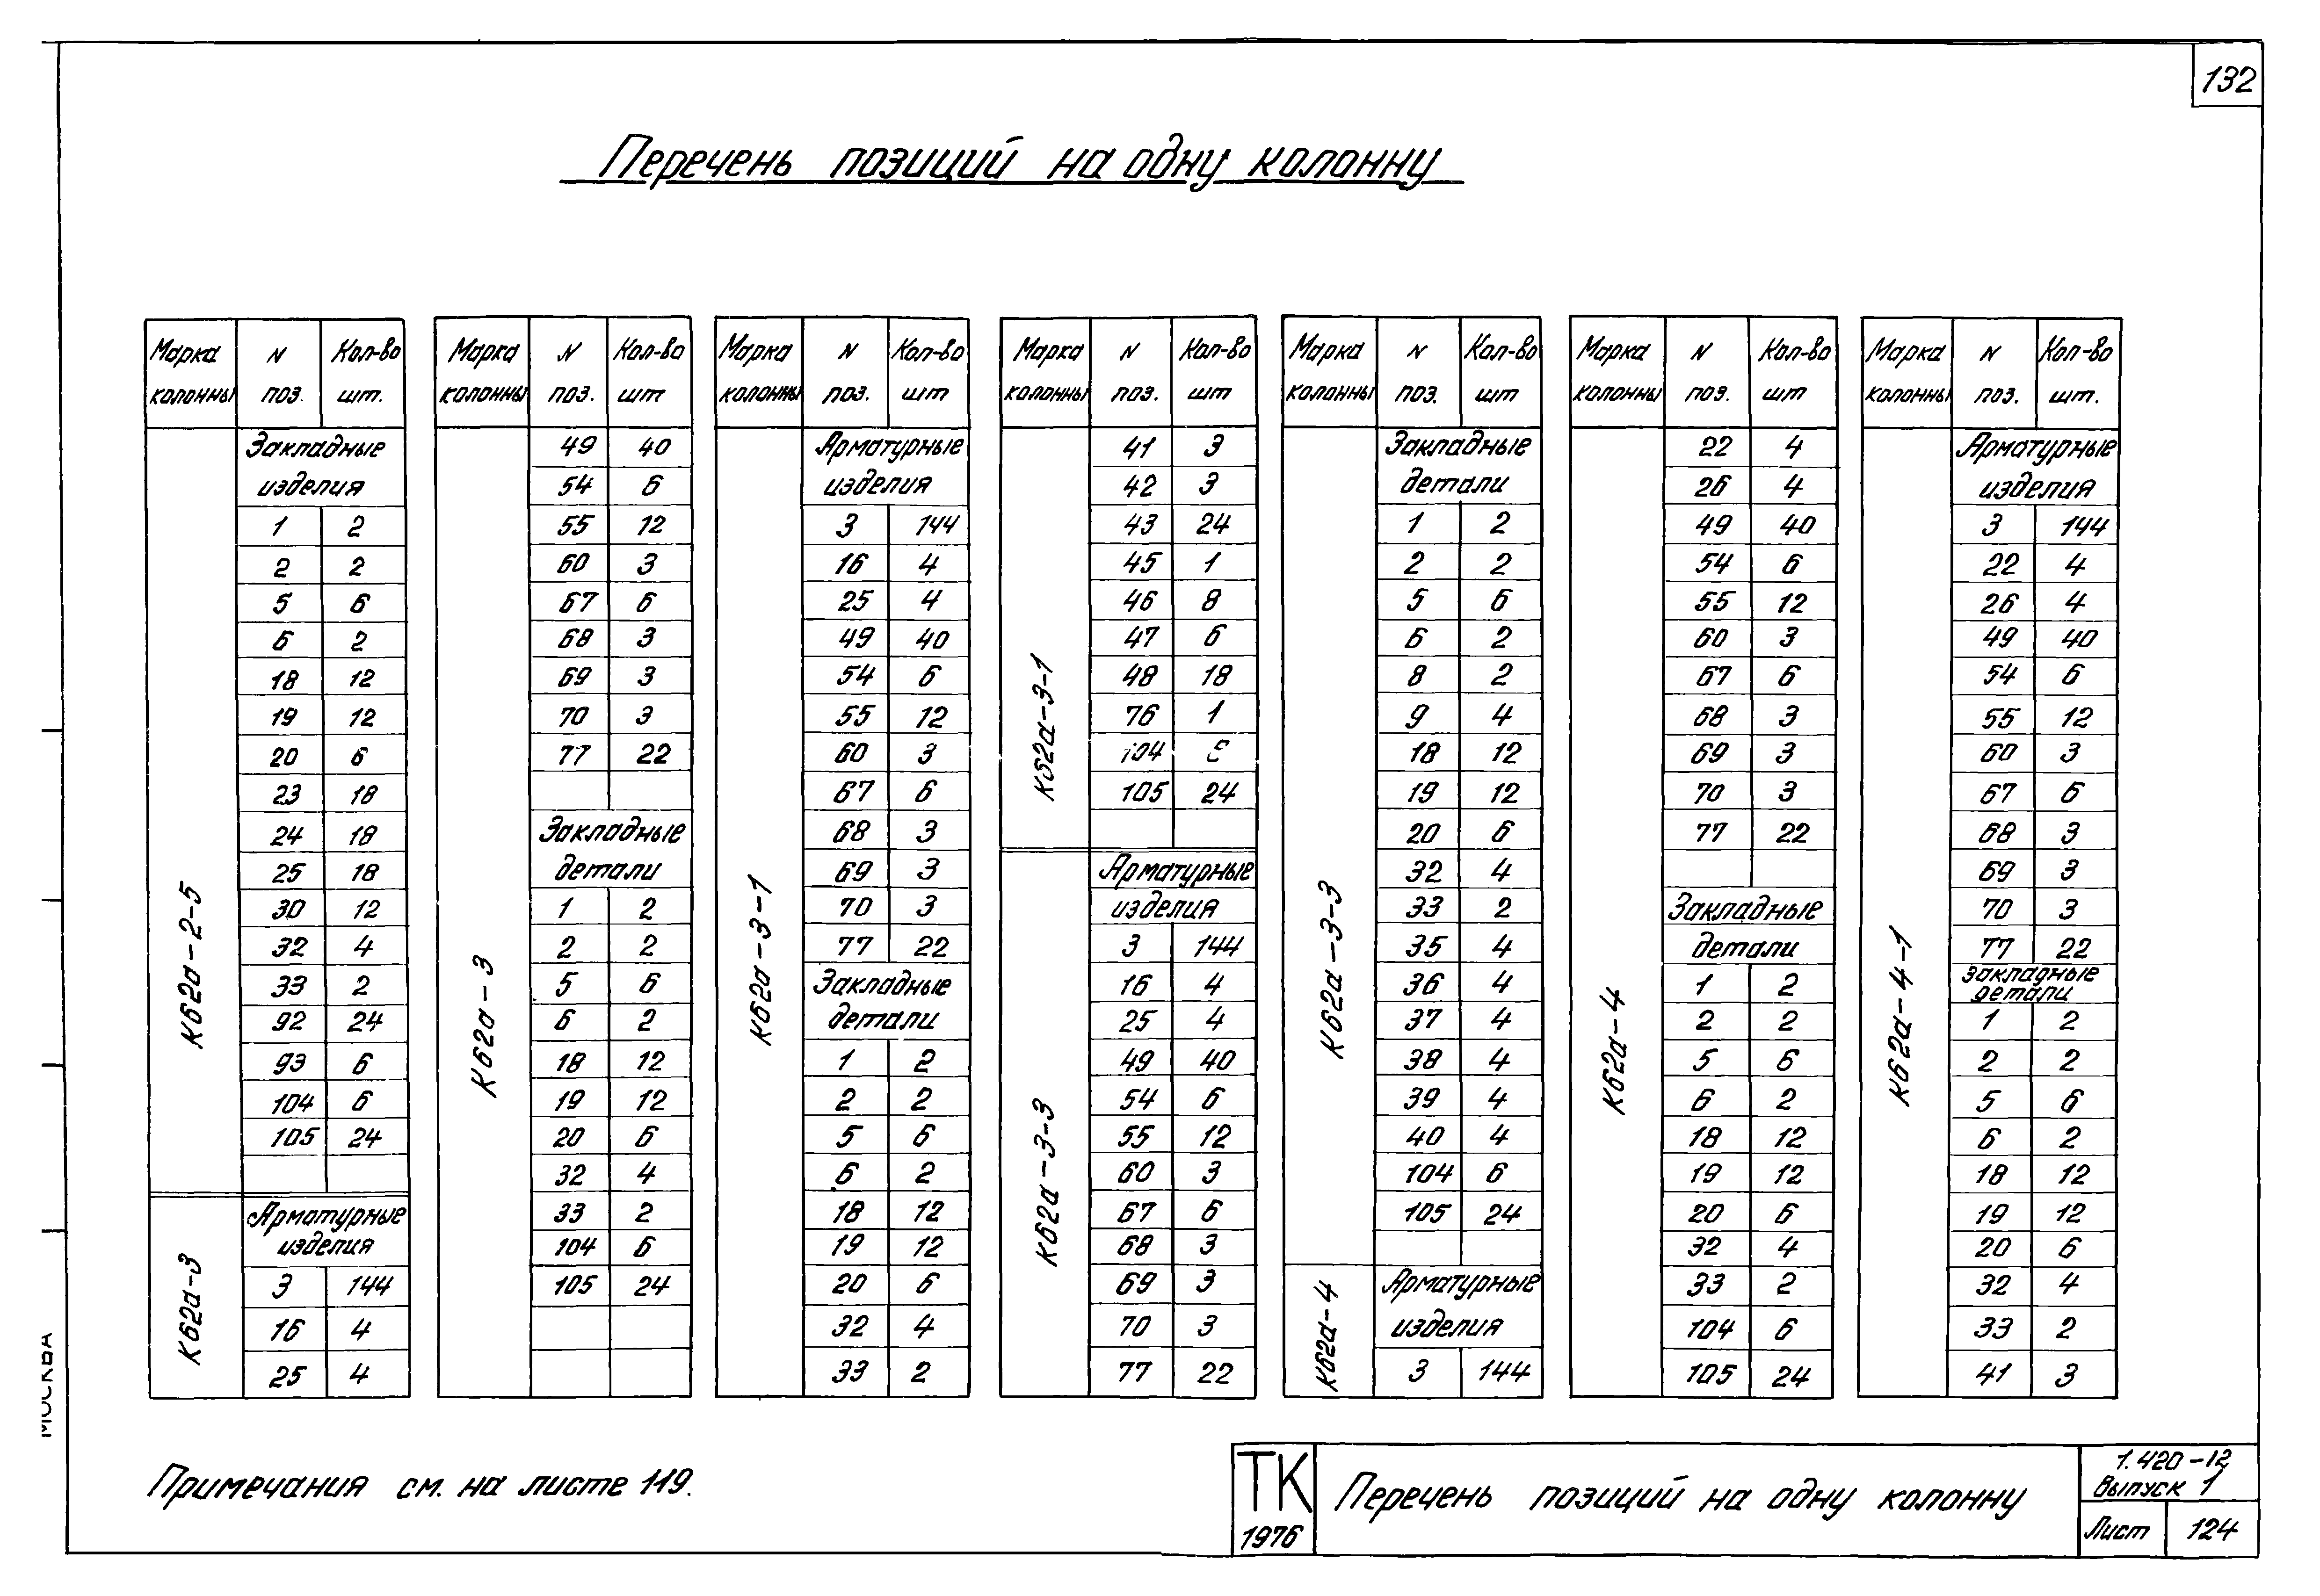 132
Перечень позиций на одну колонну
Марка колонны N поз. Кол-во шт.
К62а-2-5
Закладные
изделия
1 2
2 2
5 6
6 2
18 12
19 12
20 6
23 18
24 18
25 18
30 12
32 4
33 2
92 24
93 6
104 6
105 24
К62а-3
Арматурные
изделия
3 144
16 4
25 4
Марка колонны N поз. Кол-во шт
К62а-3
49 40
54 6
55 12
60 3
67 6
68 3
69 3
70 3
77 22
Закладные
детали
1 2
2 2
5 6
6 2
18 12
19 12
20 6
32 4
33 2
104 6
105 24
Марка колонны N поз. Кол-во шт
К62а-3-1
Арматурные
изделия
3 144
16 4
25 4
49 40
54 6
55 12
60 3
67 6
68 3
69 3
70 3
77 22
Закладные
детали
1 2
2 2
5 6
6 2
18 12
19 12
20 6
32 4
33 2
Марка колонны N поз. Кол-во шт
К62а-3-1
41 3
42 3
43 24
45 1
46 8
47 6
48 18
76 1
104
105 24
К62а-3-3
Арматурные
изделия
3 144
16 4
25 4
49 40
54 6
55 12
60 3
67 6
68 3
69 3
70 3
77 22
Марка колонны N поз. Кол-во шт
К62а-3-3
Закладные
детали
1 2
2 2
5 6
6 2
8 2
9 4
18 12
19 12
20 6
32 4
33 2
35 4
36 4
37 4
38 4
39 4
40 4
104 6
105 24
К62а-4
Арматурные
изделия
3 144
Марка колонны N поз. Кол-во шт
К62а-4
22 4
26 4
49 40
54 6
55 12
60 3
67 6
68 3
69 3
70 3
77 22
Закладные
детали
1 2
2 2
5 6
6 2
18 12
19 12
20 6
32 4
33 2
104 6
105 24
Марка колонны N поз. Кол-во шт.
К62а-4-1
Арматурные
изделия
3 144
22 4
26 4
49 40
54 6
55 12
60 3
67 6
68 3
69 3
70 3
77 22
закладные
детали
1 2
2 2
5 6
6 2
18 12
19 12
20 6
32 4
33 2
41 3
МОСКВА
Примечания см. на листе 119.
ТК
1976
Перечень позиций на одну колонну
1.420-12
Выпуск 1
Лист 124